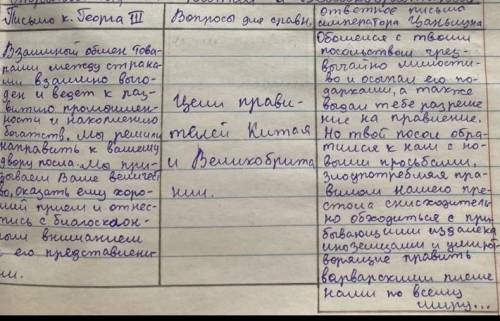 Письмо к. Георга III
Взаимный обмен това-
рами между страна-
ми взаимно выго-
ден и ведет к раз-
витию промышлен-
ности и накоплению
богатств. Мы решили
направить к вашему
двору посла. Мы при-
зываем Ваше величест
во, оказать ему хоро-
ший прием и отнес-
тись с благосклон-
ным вниманием
к его представлени-
ям.
Вопросы для сравн.
Цели прави-
телей Китая
и Великобрита
нии.
ответное письмо
императора Цяньлуна
Обошелся с твоим
посольством чрез-
вычайно милости-
во и осыпал его по-
дарками, а также
выдал тебе разреше
ние на правление.
Но твой посол обра-
тился к нам с но-
выми просьбами,
злоупотребляя пра-
вилом нашего пре-
стола снисходитель-
но обходиться с при
бывающими издалека
иноземцами и умирот
воряюще править
варварскими племе
нами по всему
миру...